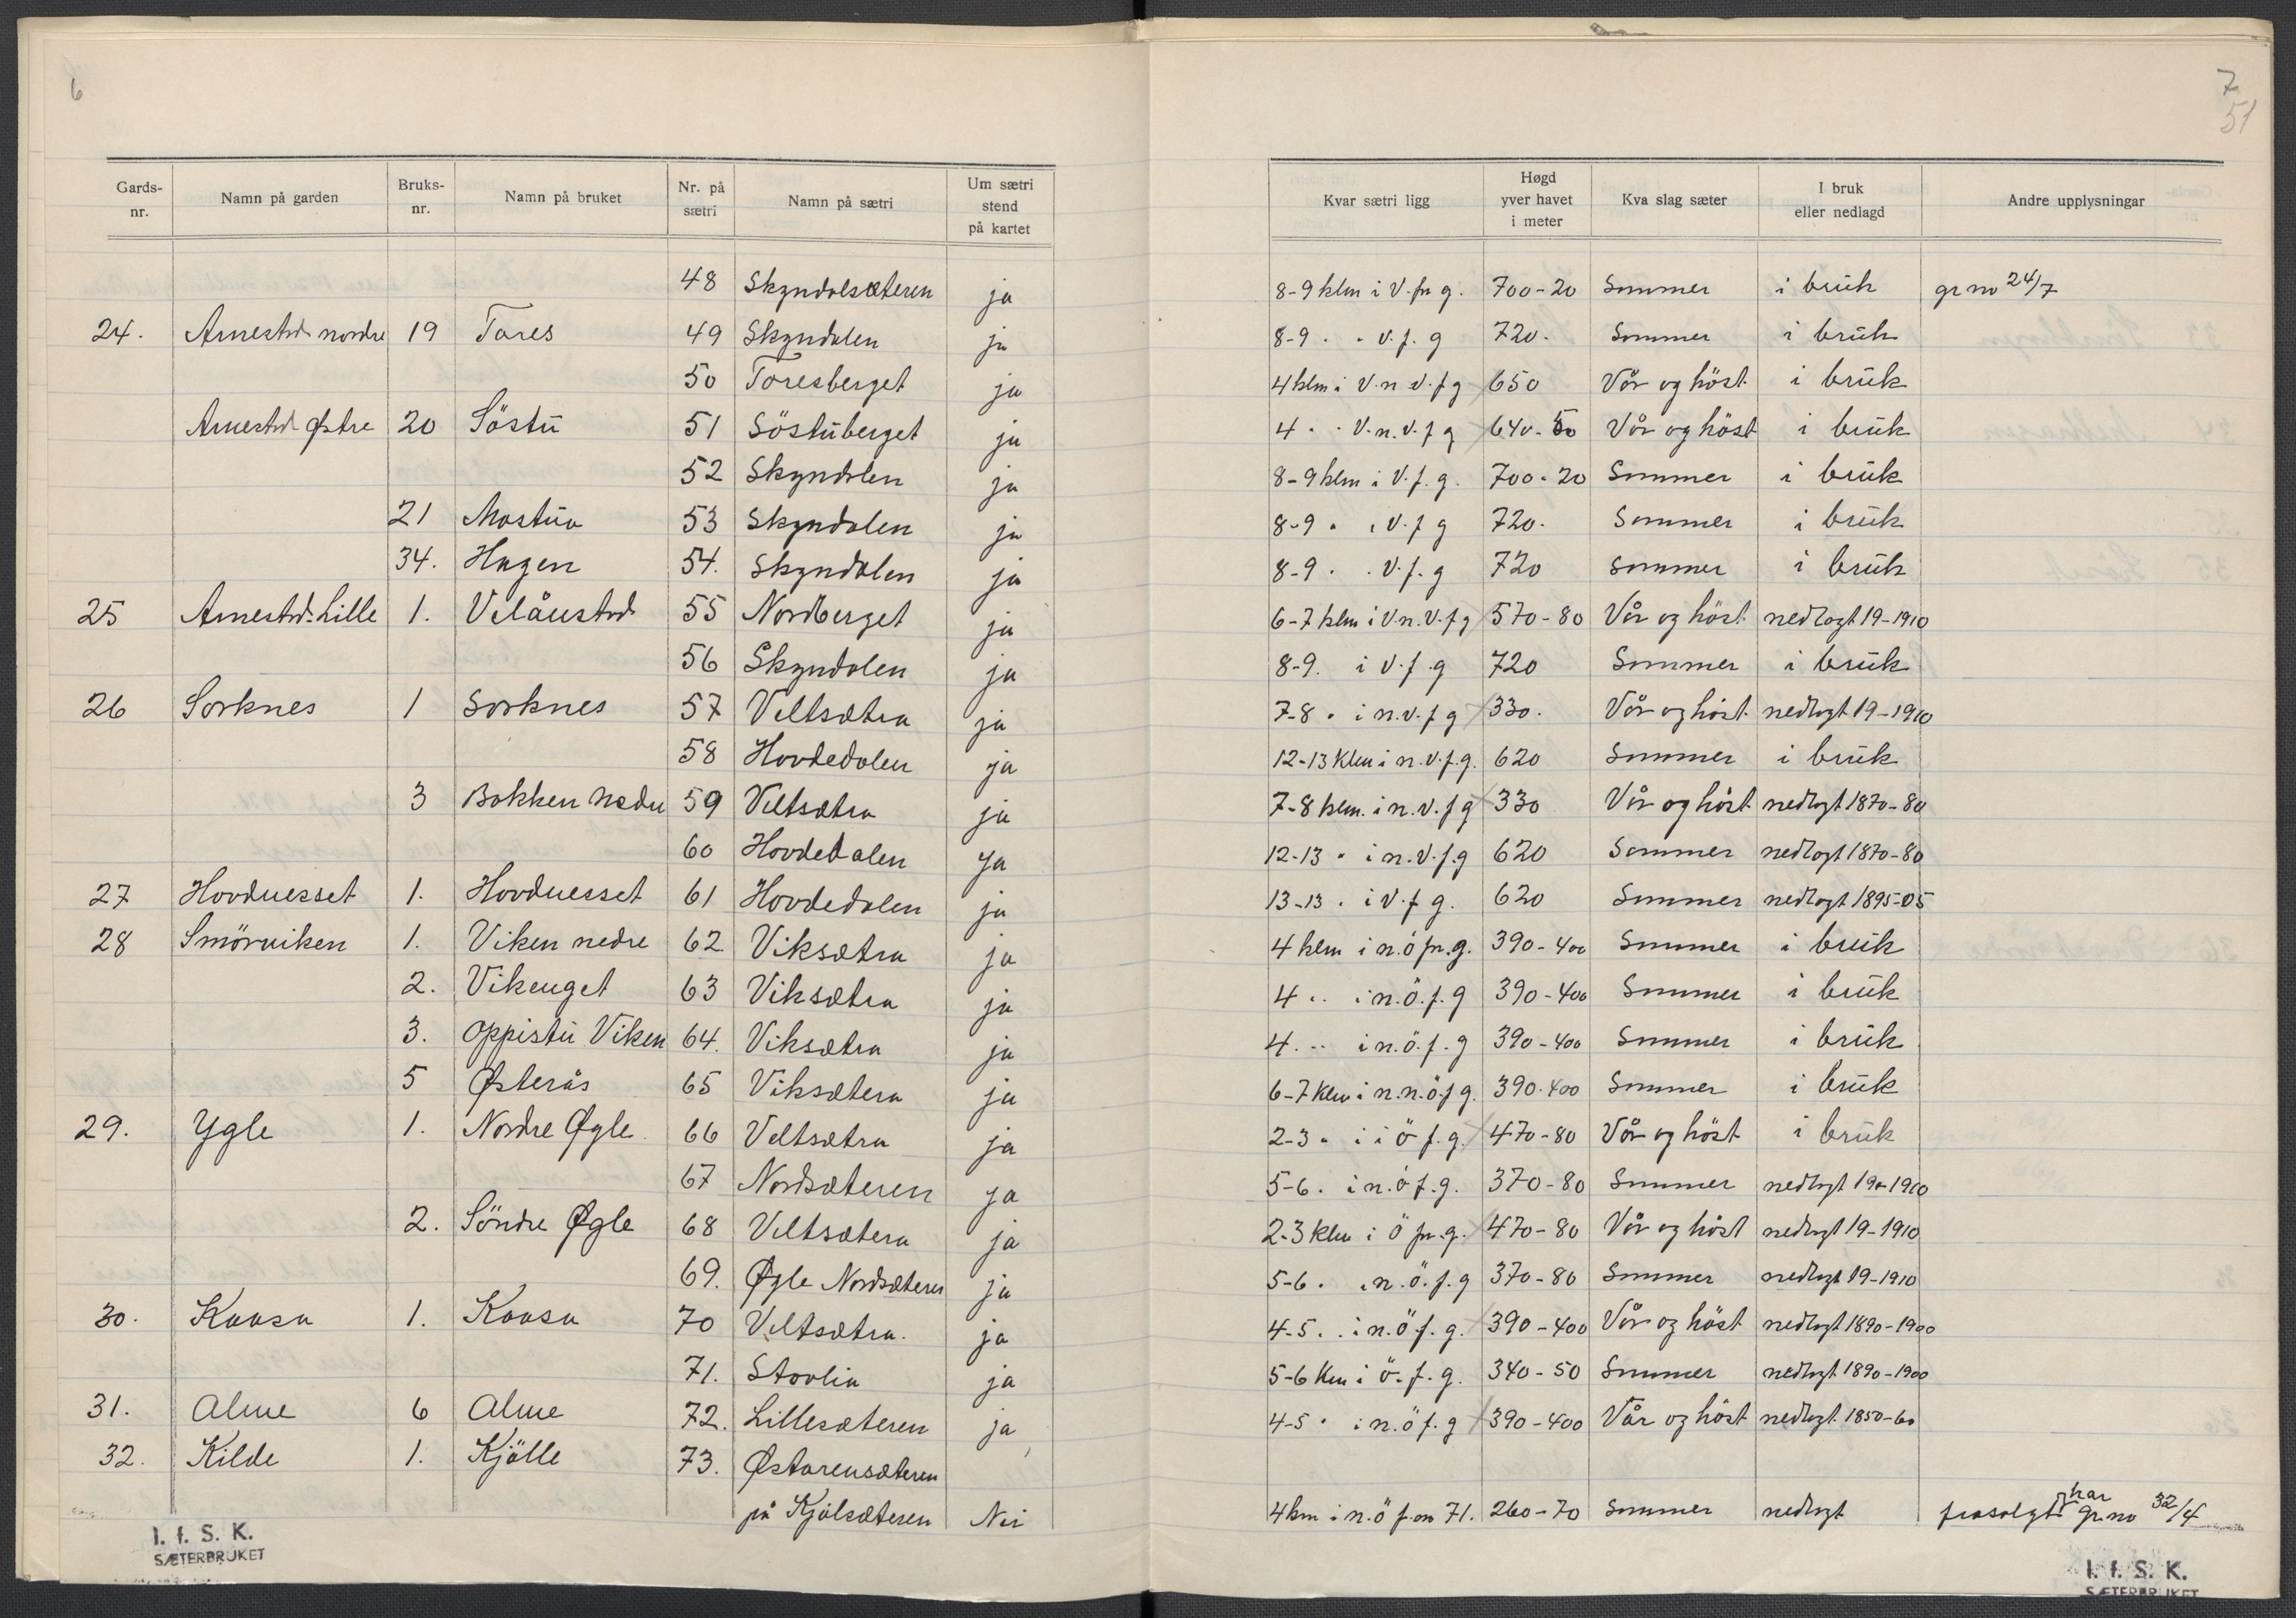 6
Gards-nr. Namn på garden Bruks-nr. Namn på bruket Nr. på sætri Namn på sætri Um sætri stend på kartet
48 Skyndalsæteren ja
24. Arnestad nordre 19 Tores 49 Skyndalen ja
50 Toresberget ja
Arnestad Østre 20 Söstŭ 51 Söstŭberget ja
52 Skyndalen ja
21 Mostŭa 53 Skyndalen ja
34. Hagen 54. Skyndalen ja
25 Arnestad Lille 1. Velåustad 55 Nordberget ja
56 Skyndalen ja
26 Sorknes 1 Sorknes 57 Veltsætra ja
58 Hovdedalen ja
3 Bakken Nedre 59 Veltsætra ja
60 Hovdedalen ja
27 Hovdnesset 1. Hovdnesset 61 Hovdedalen ja
28 Smörviken 1. Viken nedre 62 Viksætra ja
2. Vikenget 63 Viksætra ja
3. Oppistŭ Viken 64. Viksætra ja
5 Østerås 65 Viksætera ja
29. Ygle 1. Nordre Øgle 66 Veltsætra ja
67 Nordsæteren ja
2. Söndre Øgle 68 Veltsætera ja
69. Øgle Nordsæteren ja
30. Kaasa 1. Kaasa 70 Veltsætra. ja
71. Stovlia ja
31. Alme 6 Alme 72. Lillesæteren ja
32. Kilde 1. Kjölle 73. Østarensæteren
på Kjölsæteren Nei
I. f. S. K.
SÆTERBRUKET
7
51
Kvar sætri ligg Høgd yver havet i meter Kva slag sæter I bruk eller nedlagd Andre upplysningar
8-9 klm i V. fr g. 700-20 Sommer i brŭk gr no 24/7
8-9 . . V. f. g 720. Sommer i brŭk
4 klm i V. n. V. f g 650 Vår og höst i brŭk
4 . . V. n. V. f g 640-50 Vår og höst i brŭk
8-9 klm i V. f. g. 700-20 Sommer i brŭk
8-9 . . V. f g 720. Sommer i brŭk
8-9 . . V. f. g 720 Sommer i brŭk
6-7 klm i V. n. V. f g 570-80 Vår og höst nedlagt 19-1910
8-9. i V. f. g 720 Sommer i brŭk
7-8 . i n. v. f g 330. Vår og höst nedlagt 19-1910
12-13 Klm i n. v. f. g. 620 Sommer i brŭk
7-8 klm. i n. v. f g 330 Vår og höst nedlagt 1870-80
12-13 " i n. V. f. g 620 Sommer nedlagt 1870-80
13-13 . i V. f g. 620 Sommer nedlagt 1895-05
4 klm i n. ö fr. g. 390-400 Sommer i brŭk
4 .. i n. ö. f. g 390-400 Sommer i brŭk
4. .. i n. ö. f. g 390-400 Sommer i brŭk
6-7 Klm i n. n. ö. f g. 390-400 Sommer i brŭk
2-3 " i i ö f. g. 470-80 Vår og höst i brŭk
5-6 . i n. ö f. g. 370-80 Sommer nedlagt 19-1910
2-3 Klm i ö fr. g. 470-80 Vår og höst nedlagt 19-1910
5-6 . . n. ö. f. g 370-80 Sommer nedlagt 19-1910
4-5 . . i n. ö f. g. 390-400 Vår og höst nedlagt 1890-1900
5-6 Km i ö. f. g. 340-50 Sommer nedlagt 1890-1900
4-5 . i n. ö f. g 390-400 Vår og höst nedlagt 1850-60
4 km i n. ö f. 71. 260-70 Sommer nedlagt frasolgt har gr. no 32/4
I. f. S. K.
SÆTERBRUKET